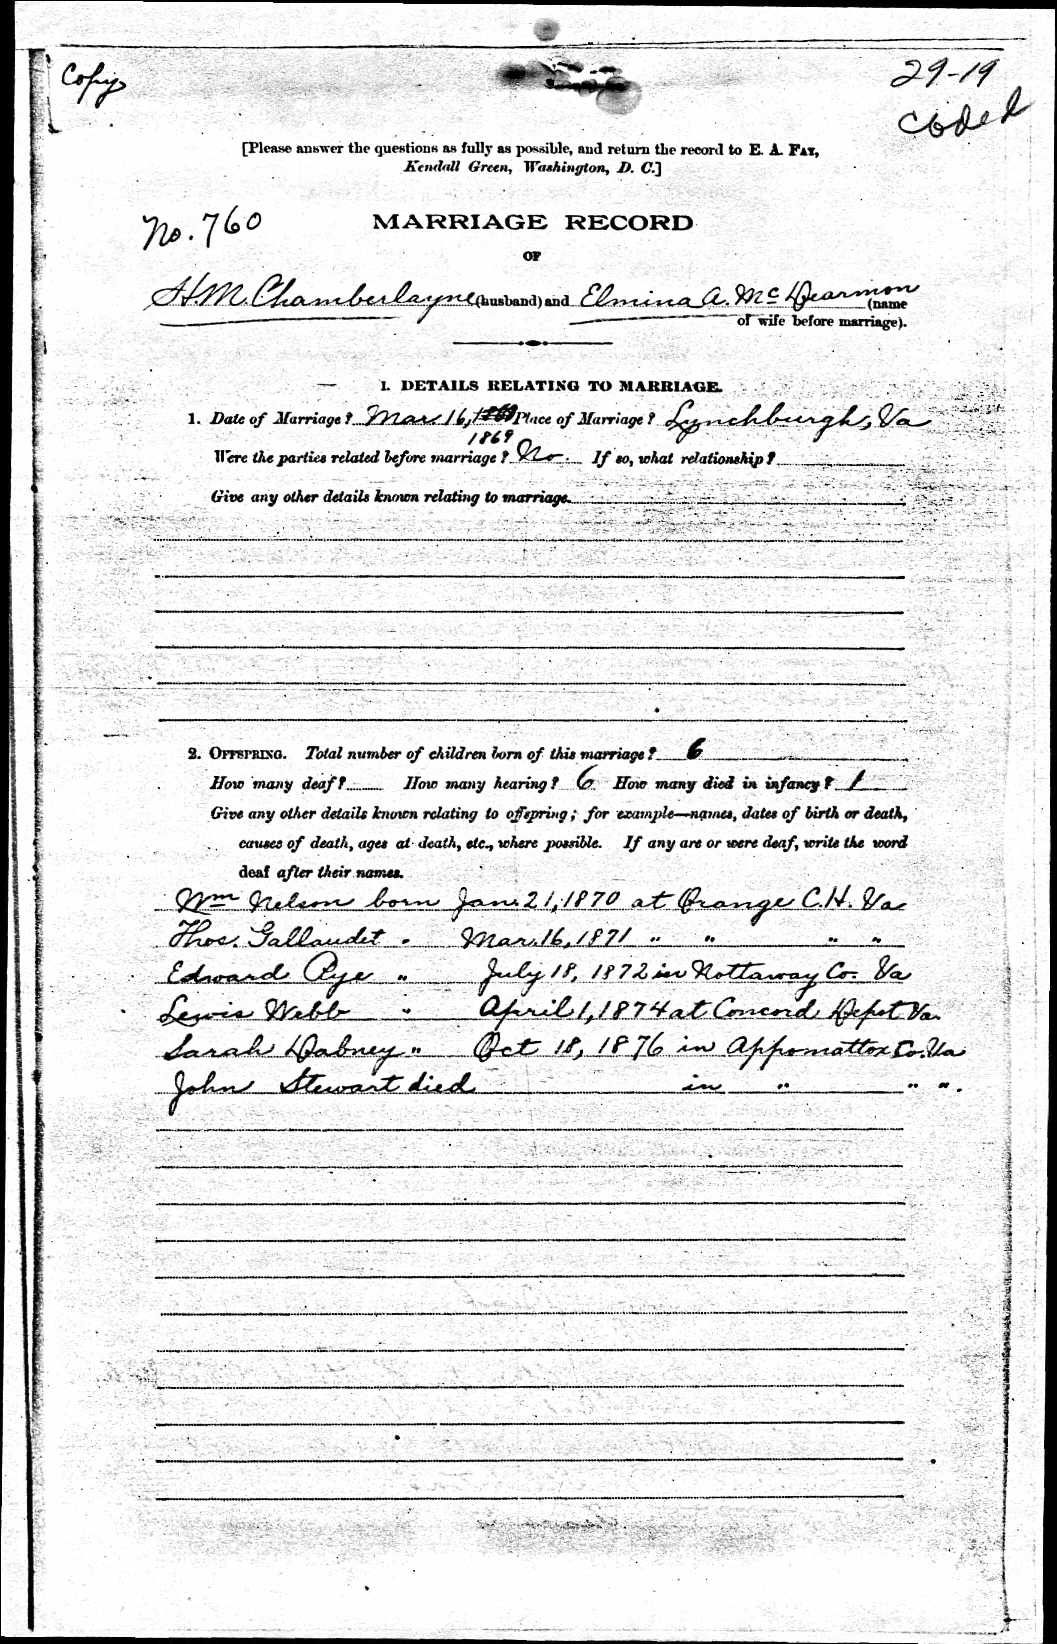 Copy
29-19
coded
[Please answer the questions as fully as possible, and return the record to E. A. Fay,
Kendall Green, Washington, D. C.]
No. 760
MARRIAGE RECORD
OF
H. M. Chamberlayne (husband) and Elmina A. McDearmon (name
of wife before marriage).
1. DETAILS RELATING TO MARRIAGE.
1. Date of Marriage? Mar 16, Place of Marriage? Lynchburgh, Va
1869
Were the parties related before marriage? No. If so, what relationship?
Give any other details known relating to marriage.
2. Offspring. Total number of children born of this marriage? 6
How many deaf? How many hearing? 6 How many died in infancy? 1
Give any other details known relating to offspring; for example—names, dates of birth or death,
causes of death, ages at death, etc., where possible. If any are or were deaf, write the word
deaf after their names.
Wm Nelson born Jan. 21, 1870 at Orange C.H. Va
Thos. Gallaudet " Mar. 16, 1871 " " " "
Edward Pye " July 18, 1872 in Nottaway Co. Va
Lewis Webb " April 1, 1874 at Concord Depot Va.
Sarah Dabney " Oct 18, 1876 in Appomattox Co. Va
John Stewart died in " " ".